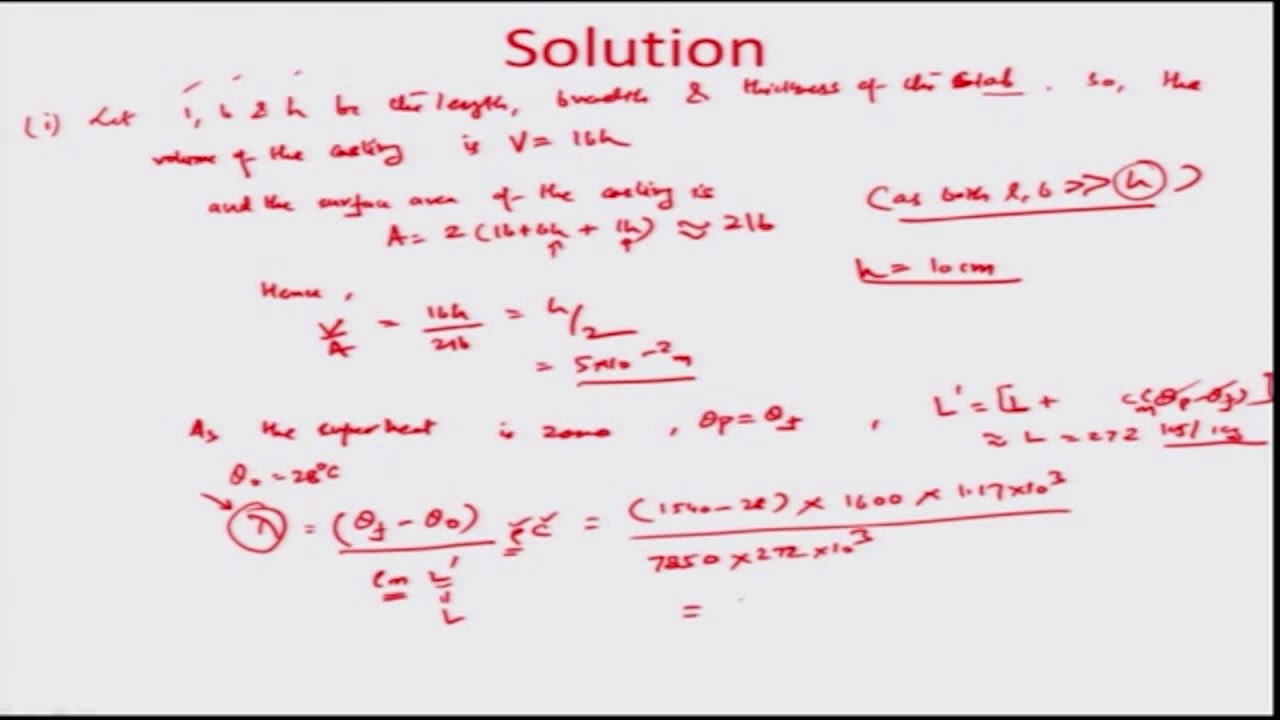 Solution
(i) Let l, b & h be the length, breadth & thickness of the slab. So, the
volume of the casting is V = lbh
and the surface area of the casting is
(as both l, b >> h)
A = 2 (lb + bh + lh) ≈ 2lb
h = 10 cm
Hence,
V/A = lbh/2lb = h/2
= 5×10⁻² m
As the superheat is zero, θp = θf , L' = [L + Cm(θp-θf)]
≈ L = 272 kJ/kg
θ₀ = 28°C
λ = (θf - θ₀)/(ρm L') ρc = (1540-28) × 1600 × 1.17×10³/(7850×272×10³)
L
=